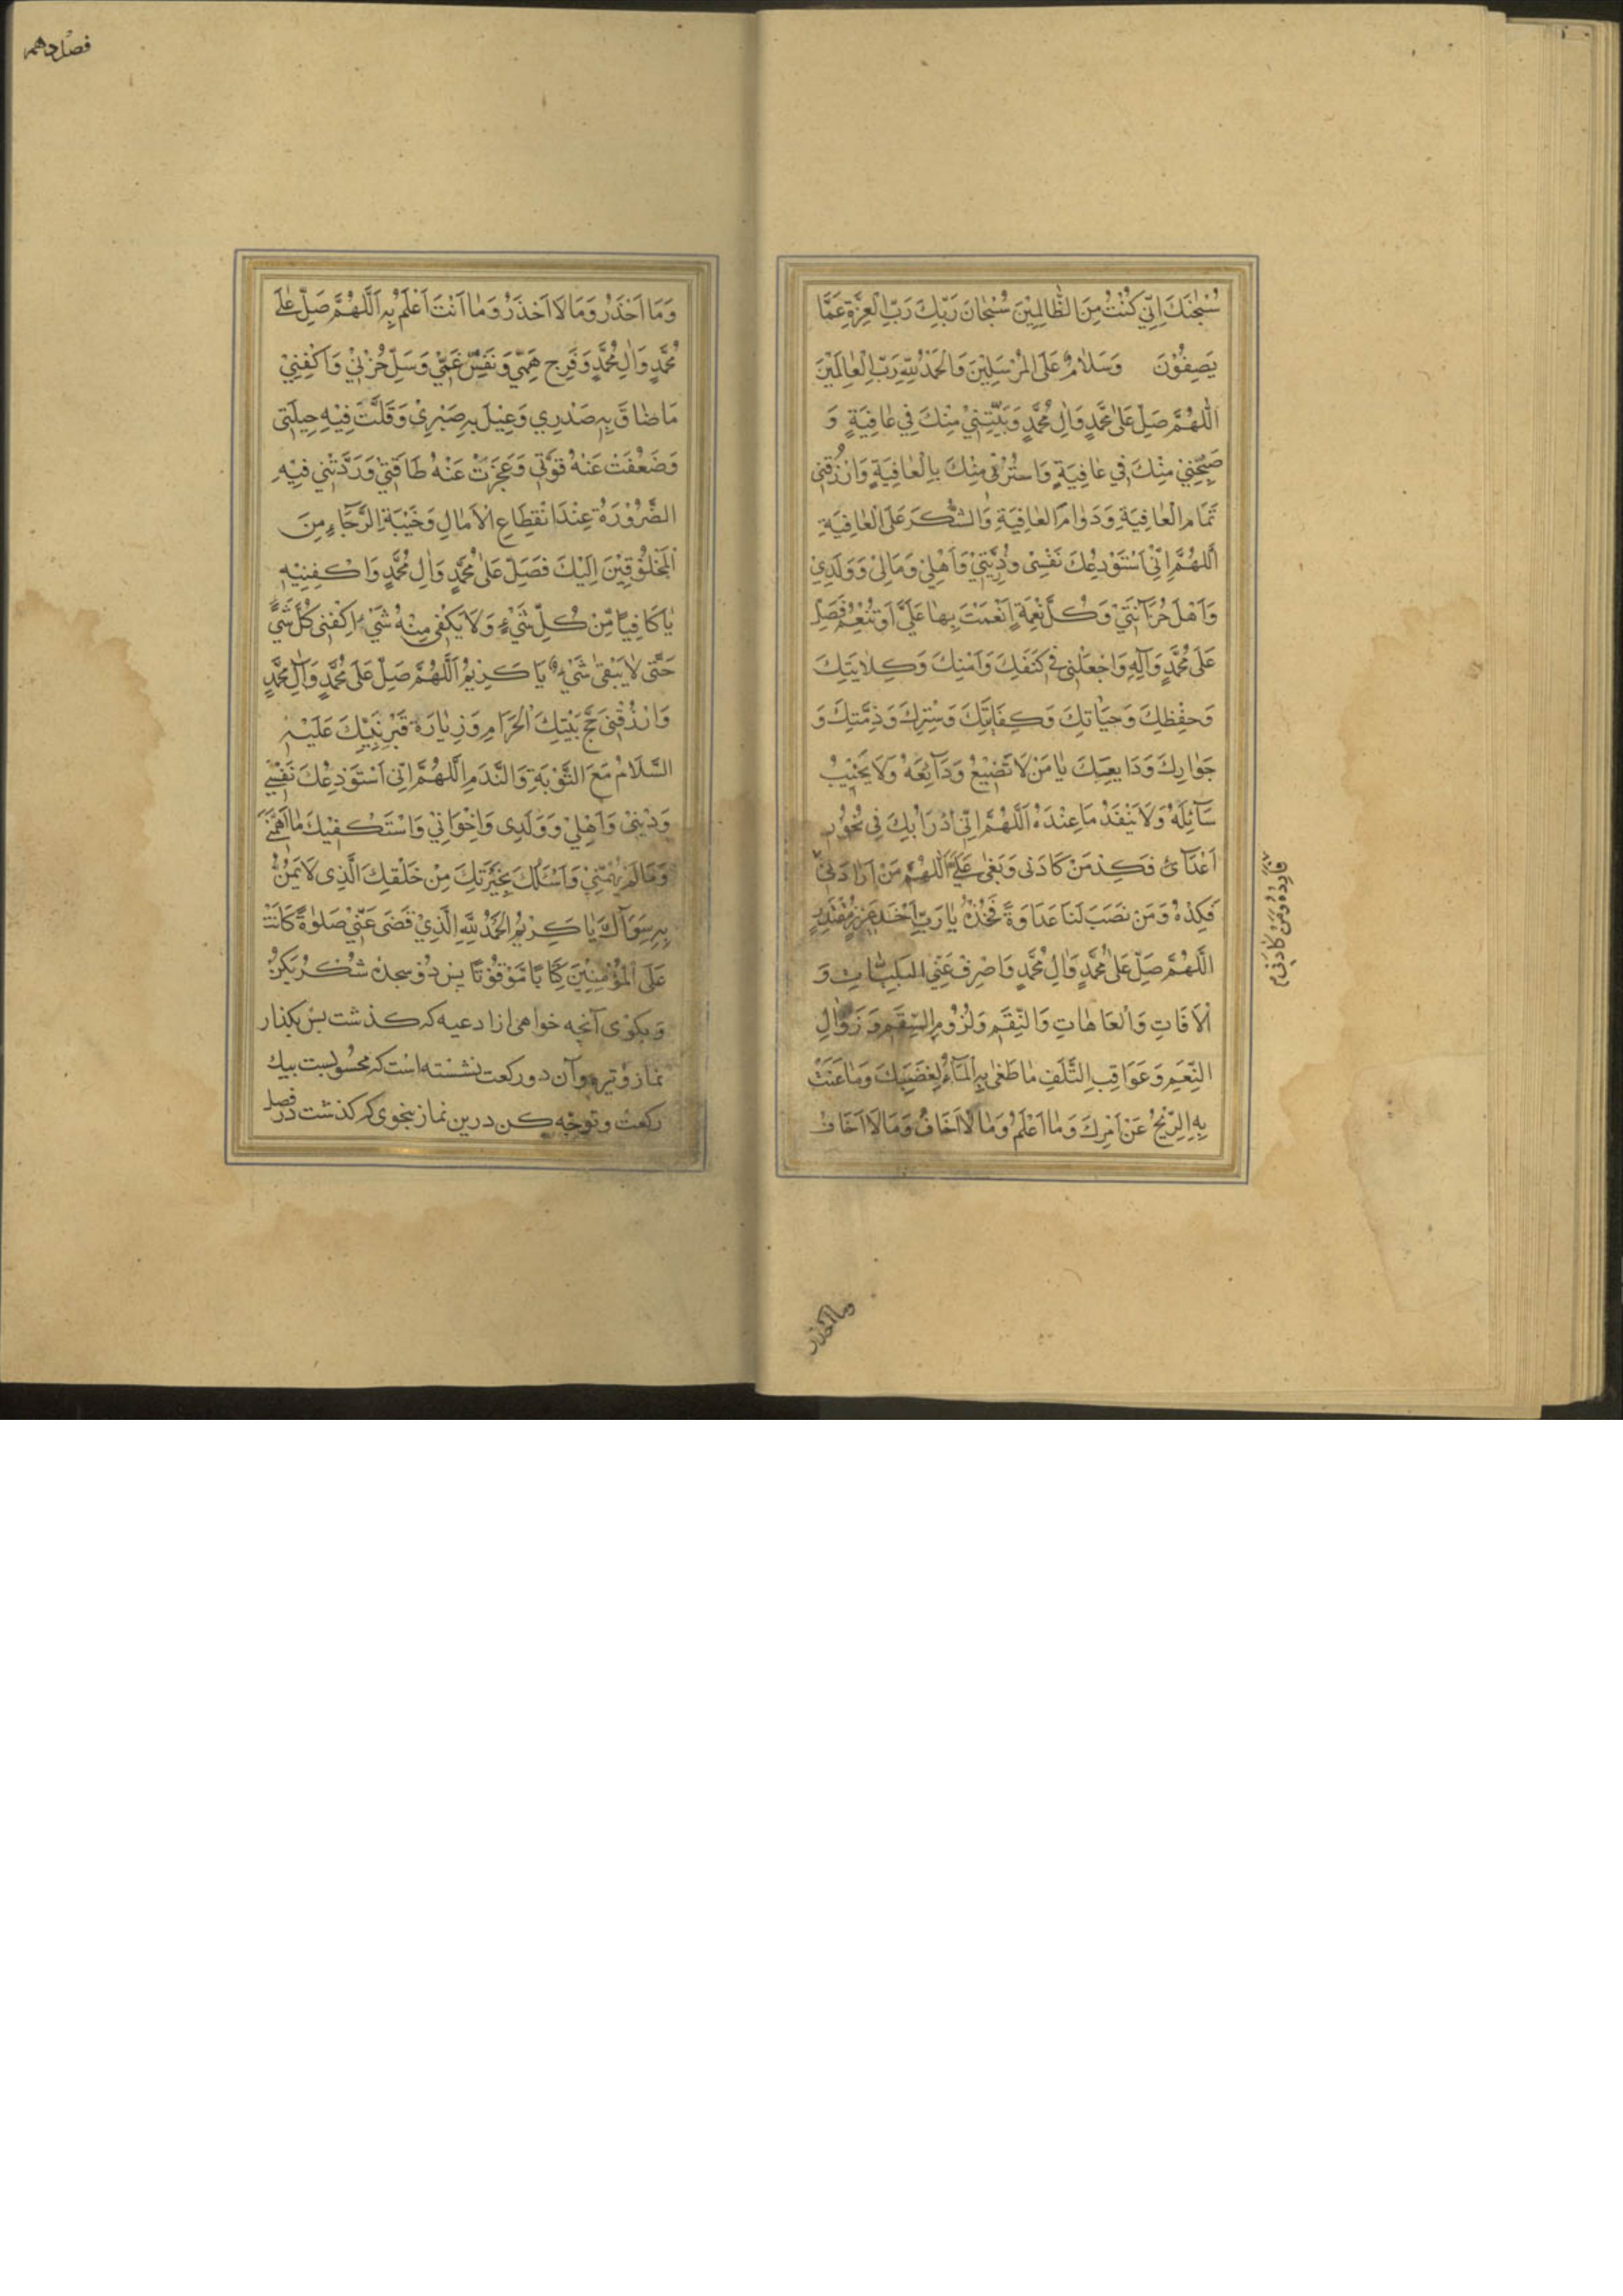 سُبْحٰنَكَ اِنِّي كُنْتُ مِنَ الظّٰالِمِيْنَ سُبْحٰانَ رَبِّكَ رَبِّ الْعِزَّةِ عَمَّا
يَصِفُوْنَ وَسَلٰامٌ عَلَى الْمُرْسَلِيْنَ وَالْحَمْدُ لِلّٰهِ رَبِّ الْعٰالَمِيْنَ
اَللّٰهُمَّ صَلِّ عَلٰى مُحَمَّدٍ وَاٰلِ مُحَمَّدٍ وَبَيِّتْنِيْ مِنْكَ فِي عٰافِيَةٍ وَ
صَبِّحْنِيْ مِنْكَ فِي عٰافِيَةٍ وَاسْتُرْنِي مِنْكَ بِالْعٰافِيَةِ وَارْزُقْنِي
تَمَامَ الْعٰافِيَةِ وَدَوٰامَ الْعٰافِيَةِ وَالشُّكْرَ عَلَى الْعٰافِيَةِ
اَللّٰهُمَّ اِنِّي اَسْتَوْدِعُكَ نَفْسِي وَذُرِّيَّتِيْ وَاَهْلِيْ وَمَالِيْ وَوَلَدِيْ
وَاَهْلَ حُزَانَتِيْ وَكُلَّ نِعْمَةٍ اَنْعَمْتَ بِهٰا عَلَيَّ اَوْ تُنْعِمُ فَصَلِّ
عَلٰى مُحَمَّدٍ وَآلِهِ وَاجْعَلْنِي فِي كَنَفِكَ وَاَمْنِكَ وَكِلٰايَتِكَ
وَحِفْظِكَ وَحِيَاتِكَ وَكِفَايَتِكَ وَسِتْرِكَ وَذِمَّتِكَ وَ
جَوٰارِكَ وَدَايِعِكَ يٰا مَنْ لَا تَضِيْعُ وَدَآئِعُهُ وَلَا يَخِيْبُ
سَآئِلُهُ وَلَا يَنْفَدُ مَا عِنْدَهُ اَللّٰهُمَّ اِنِّي اَدْرَاُ بِكَ فِي نُحُوْرِ
اَعْدَآئِي فَكِدْ مَنْ كَادَنِي وَبَغٰى عَلَيَّ اَللّٰهُمَّ مَنْ اَرٰادَنِيْ
فَكِدْهُ وَمَنْ نَصَبَ لَنَا عَدَاوَةً فَخُذْهُ يٰا رَبِّ اَخْذَ عَزِيْزٍ مُقْتَدِرٍ
اَللّٰهُمَّ صَلِّ عَلٰى مُحَمَّدٍ وَاٰلِ مُحَمَّدٍ وَاصْرِفْ عَنِّي الْبَلِيّٰاتِ وَ
الْاٰفَاتِ وَالْعَاهَاتِ وَالنِّقَمِ وَلُزُوْمِ السَّقَمِ وَزَوٰالِ
النِّعَمِ وَعَوَاقِبِ التَّلَفِ مٰا طَغٰى بِهِ الْمَآءُ لِغَضَبِكَ وَمٰا عَتَتْ
بِهِ الرِّيْحُ عَنْ اَمْرِكَ وَمٰا اَعْلَمُ وَمٰا لٰا اَعْلَمُ وَمَا اَخَافُ وَمَا لَا اَخَافُ
فَارْدِهُ وَمَنْ كَادَنِي م
وما احذر
فصل دهم
وَمَا اَحْذَرُ وَمَا لَا اَحْذَرُ وَمٰا اَنْتَ اَعْلَمُ بِهِ اَللّٰهُمَّ صَلِّ عَلٰى
مُحَمَّدٍ وَاٰلِ مُحَمَّدٍ وَفَرِّجْ هَمِّيْ وَنَفِّسْ غَمِّيْ وَسَلِّ حُزْنِيْ وَاكْفِنِيْ
مَا ضٰاقَ بِهِ صَدْرِي وَعِيْلَ بِهِ صَبْرِيْ وَقَلَّتْ فِيْهِ حِيْلَتِي
وَضَعُفَتْ عَنْهُ قُوَّتِي وَعَجَزَتْ عَنْهُ طَاقَتِيْ وَرَدَّتْنِي فِيْهِ
الضَّرُوْرَةُ عِنْدَ انْقِطَاعِ الْاٰمَالِ وَخَيْبَةِ الرَّجَآءِ مِنَ
الْمَخْلُوْقِيْنَ اِلَيْكَ فَصَلِّ عَلٰى مُحَمَّدٍ وَاٰلِ مُحَمَّدٍ وَاكْفِنِيْهِ
يٰا كَافِيًا مِنْ كُلِّ شَيْءٍ وَلَا يَكْفِي مِنْهُ شَيْءٌ اِكْفِنِي كُلَّ شَيْءٍ
حَتّٰى لٰا يَبْقٰى شَيْءٌ يَا كَرِيْمُ اَللّٰهُمَّ صَلِّ عَلٰى مُحَمَّدٍ وَآلِ مُحَمَّدٍ
وَارْزُقْنِي حَجَّ بَيْتِكَ الْحَرَامِ وَزِيٰارَةَ قَبْرِ نَبِيِّكَ عَلَيْهِ
السَّلَامُ مَعَ التَّوْبَةِ وَالنَّدَمِ اَللّٰهُمَّ اِنِّي اَسْتَوْدِعُكَ نَفْسِيْ
وَدِيْنِيْ وَاَهْلِيْ وَوَلَدِي وَاِخْوَانِيْ وَاَسْتَكْفِيْكَ مٰا اَهَمَّنِيْ
وَمَا لَمْ يُهِمَّنِيْ وَاَسْئَلُكَ بِخِيَرَتِكَ مِنْ خَلْقِكَ الَّذِي لَا يَمُنُّ
بِهِ سِوَاكَ يَا كَرِيْمُ اَلْحَمْدُ لِلّٰهِ الَّذِيْ قَضٰى عَنِّيْ صَلٰوةً كَانَتْ
عَلَى الْمُؤْمِنِيْنَ كِتَابًا مَوْقُوْتًا پس دو سجدهٔ شكر بكن
و بكوى آنچه خواهى از ادعيه كه كذشت پس بكذار
نماز وتيره و آن دو ركعت نشسته است كه محسوبست بيك
ركعت و توجه كن درين نماز بنحوى كه كذشت در فصل